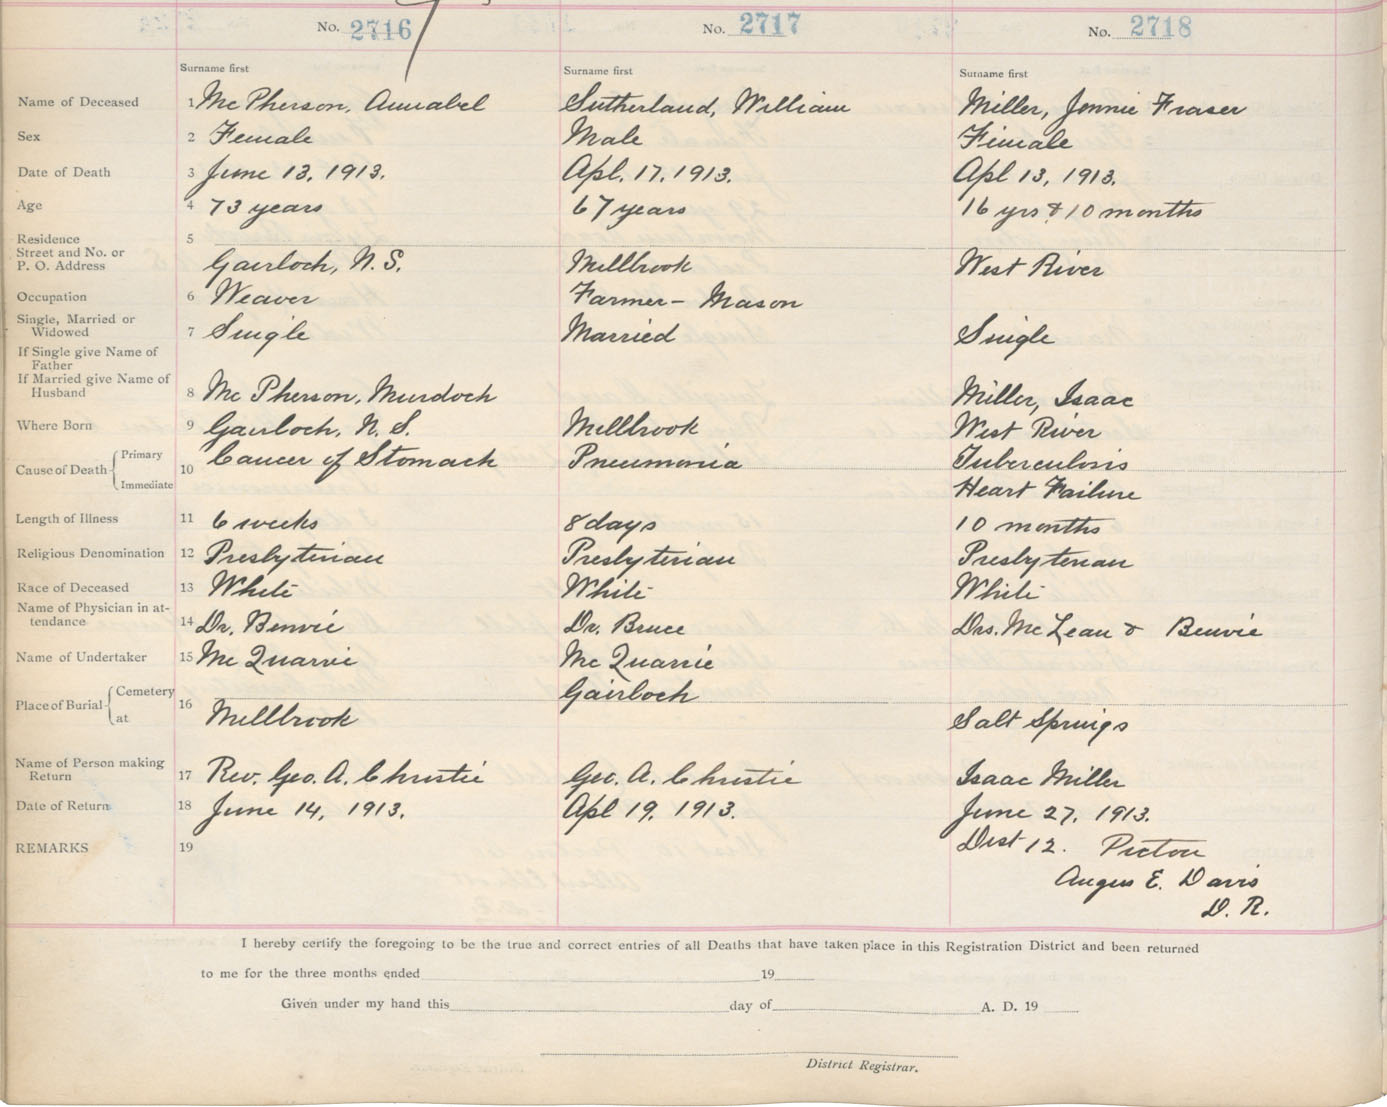 No. 2716 No. 2717 No. 2718
Surname first Surname first Surname first
Name of Deceased 1 McPherson, Annabel Sutherland, William Miller, Jennie Fraser
Sex 2 Female Male Female
Date of Death 3 June 13, 1913. Apl. 17, 1913. Apl 13, 1913.
Age 4 73 years 67 years 16 yrs & 10 months
Residence 5
Street and No. or
P. O. Address Gairloch, N. S. Millbrook West River
Occupation 6 Weaver Farmer - Mason
Single, Married or
Widowed 7 Single Married Single
If Single give Name of
Father
If Married give Name of
Husband 8 McPherson, Murdoch Miller, Isaac
Where Born 9 Gairloch, N. S. Millbrook West River
Cause of Death Primary 10 Cancer of Stomach Pneumonia Tuberculosis
Immediate Heart Failure
Length of Illness 11 6 weeks 8 days 10 months
Religious Denomination 12 Presbyterian Presbyterian Presbyterian
Race of Deceased 13 White White White
Name of Physician in at-
tendance 14 Dr. Benvie Dr. Bruce Drs. McLean & Benvie
Name of Undertaker 15 McQuarrie McQuarrie
Place of Burial Cemetery 16 Gairloch
at Millbrook Salt Springs
Name of Person making
Return 17 Rev. Geo. A. Christie Geo. A. Christie Isaac Miller
Date of Return 18 June 14, 1913. Apl 19, 1913. June 27, 1913.
REMARKS 19 Dist 12. Pictou
Angus E. Davis
D. R.
I hereby certify the foregoing to be the true and correct entries of all Deaths that have taken place in this Registration District and been returned
to me for the three months ended 19
Given under my hand this day of A. D. 19
District Registrar.